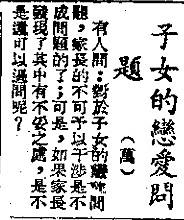 子女的戀愛問
題
（萬）
有人問：對於子女的戀愛問
題，家長的不可予以干涉是不
成問題的了；可是，如果家長
發現了其中有不妥之處，是不
是還可以過問呢？